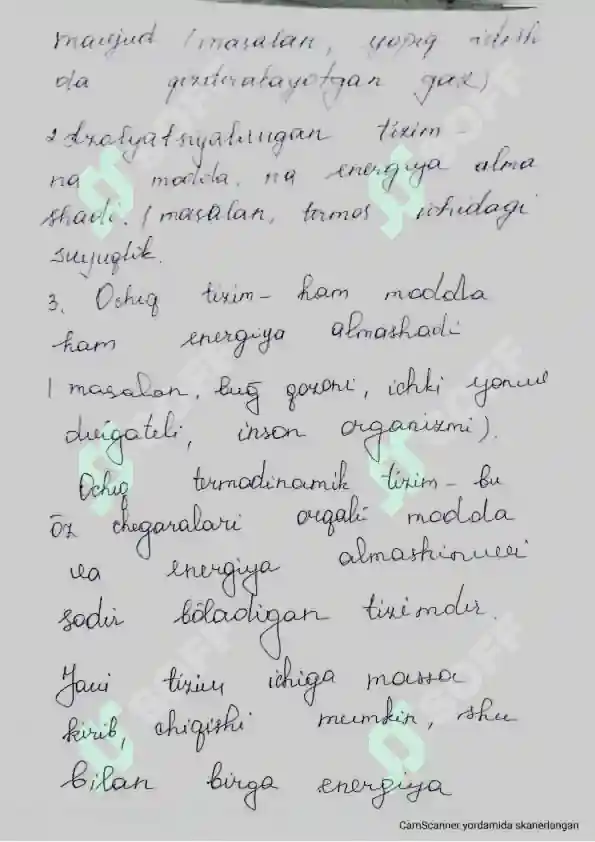 mavjud (masalan, yopiq idish
da qizdirilayotgan gaz)
2 Izolyatsiyalangan tizim -
na modda, na energiya alma
shadi. (masalan, termos ichidagi
suyuqlik.
3. Ochiq tizim - ham modda
ham energiya almashadi
(masalan, bug qozoni, ichki yonuv
dvigateli, inson organizmi).
Ochiq termodinamik tizim - bu
õz chegaralari orqali modda
va energiya almashinuvi
sodir bõladigan tizimdir.
Yani tizim ichiga massa
kirib, chiqishi mumkin, shu
bilan birga energiya
CamScanner yordamida skanerlangan
SOFF
SOFF
SOFF
SOFF
SOFF
SOFF